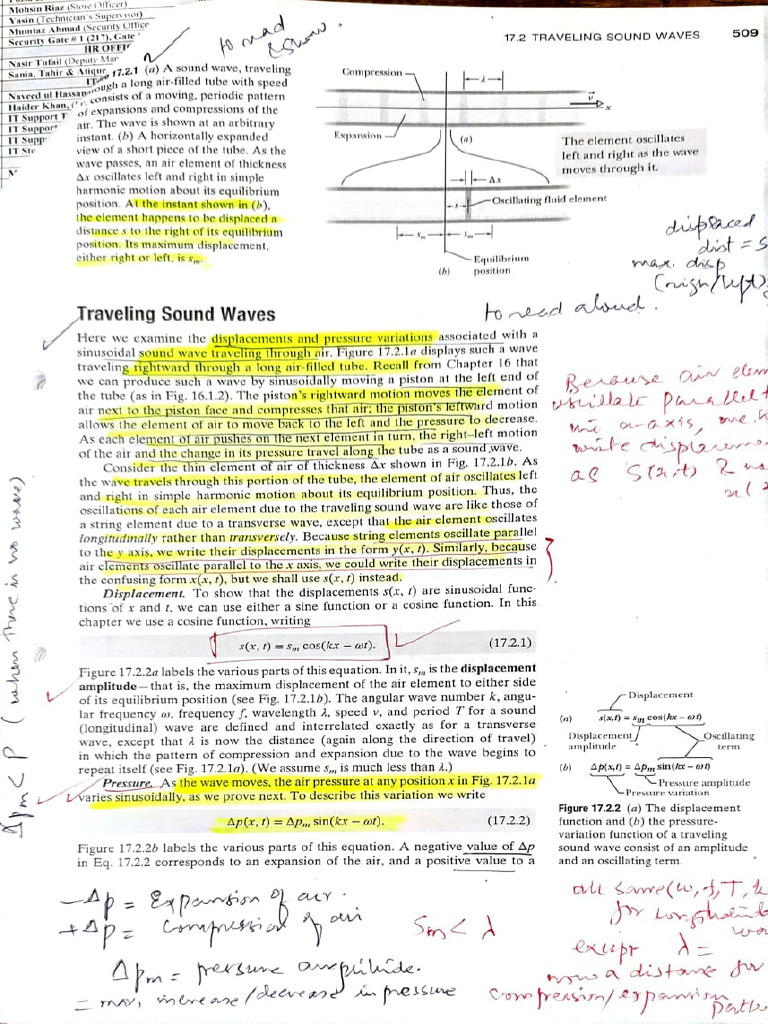 Mohsin Riaz (Store Officer)
Yasin (Technician's Supervisor)
Mumtaz Ahmad (Security Office
Security Gate # 1 (217), Gate
HR OFFI
Nasir Tufail (Deputy Mar
Sania, Tahir & Atique
IT
Naveed ul Hassan
Haider Khan,
IT Support T
IT Support
IT Supp
to read
& show.
17.2 TRAVELING SOUND WAVES 509
17.2.1 (a) A sound wave, traveling
rough a long air-filled tube with speed
consists of a moving, periodic pattern
of expansions and compressions of the
air. The wave is shown at an arbitrary
instant. (b) A horizontally expanded
view of a short piece of the tube. As the
wave passes, an air element of thickness
Δx oscillates left and right in simple
harmonic motion about its equilibrium
position. At the instant shown in (b),
the element happens to be displaced a
distance s to the right of its equilibrium
position. Its maximum displacement,
either right or left, is sₘ.
Compression
λ
v
x
Expansion
(a)
The element oscillates
left and right as the wave
moves through it.
Δx
s
Oscillating fluid element
sₘ sₘ
Equilibrium
position
(b)
displaced
dist = s
max. disp
(righ/left)
to read aloud.
Traveling Sound Waves
Here we examine the displacements and pressure variations associated with a
sinusoidal sound wave traveling through air. Figure 17.2.1a displays such a wave
traveling rightward through a long air-filled tube. Recall from Chapter 16 that
we can produce such a wave by sinusoidally moving a piston at the left end of
the tube (as in Fig. 16.1.2). The piston's rightward motion moves the element of
air next to the piston face and compresses that air; the piston's leftward motion
allows the element of air to move back to the left and the pressure to decrease.
As each element of air pushes on the next element in turn, the right–left motion
of the air and the change in its pressure travel along the tube as a sound wave.
Consider the thin element of air of thickness Δx shown in Fig. 17.2.1b. As
the wave travels through this portion of the tube, the element of air oscillates left
and right in simple harmonic motion about its equilibrium position. Thus, the
oscillations of each air element due to the traveling sound wave are like those of
a string element due to a transverse wave, except that the air element oscillates
longitudinally rather than transversely. Because string elements oscillate parallel
to the y axis, we write their displacements in the form y(x, t). Similarly, because
air elements oscillate parallel to the x axis, we could write their displacements in
the confusing form x(x, t), but we shall use s(x, t) instead.
Because air elem
oscillate parallel t
x-axis, we
write displacem
as S(x,t) & no
x(
Displacement. To show that the displacements s(x, t) are sinusoidal func-
tions of x and t, we can use either a sine function or a cosine function. In this
chapter we use a cosine function, writing
s(x, t) = sₘ cos(kx − ωt). (17.2.1)
Figure 17.2.2a labels the various parts of this equation. In it, sₘ is the displacement
amplitude—that is, the maximum displacement of the air element to either side
of its equilibrium position (see Fig. 17.2.1b). The angular wave number k, angu-
lar frequency ω, frequency f, wavelength λ, speed v, and period T for a sound
(longitudinal) wave are defined and interrelated exactly as for a transverse
wave, except that λ is now the distance (again along the direction of travel)
in which the pattern of compression and expansion due to the wave begins to
repeat itself (see Fig. 17.2.1a). (We assume sₘ is much less than λ.)
Pressure. As the wave moves, the air pressure at any position x in Fig. 17.2.1a
varies sinusoidally, as we prove next. To describe this variation we write
Δp(x, t) = Δpₘ sin(kx − ωt). (17.2.2)
Figure 17.2.2b labels the various parts of this equation. A negative value of Δp
in Eq. 17.2.2 corresponds to an expansion of the air, and a positive value to a
Δpm < P (when there is no wave)
Displacement
(a) s(x,t) = sₘ cos(kx − ωt)
Displacement
amplitude
Oscillating
term
(b) Δp(x,t) = Δpₘ sin(kx − ωt)
Pressure amplitude
Pressure variation
Figure 17.2.2 (a) The displacement
function and (b) the pressure-
variation function of a traveling
sound wave consist of an amplitude
and an oscillating term.
−Δp = Expansion of air.
+Δp = Compression of air
Sm < λ
Δpm = pressure amplitude.
= max, increase/decrease in pressure
all same (ω, f, T, k
for
except λ =
now a distance for
compression/expansion